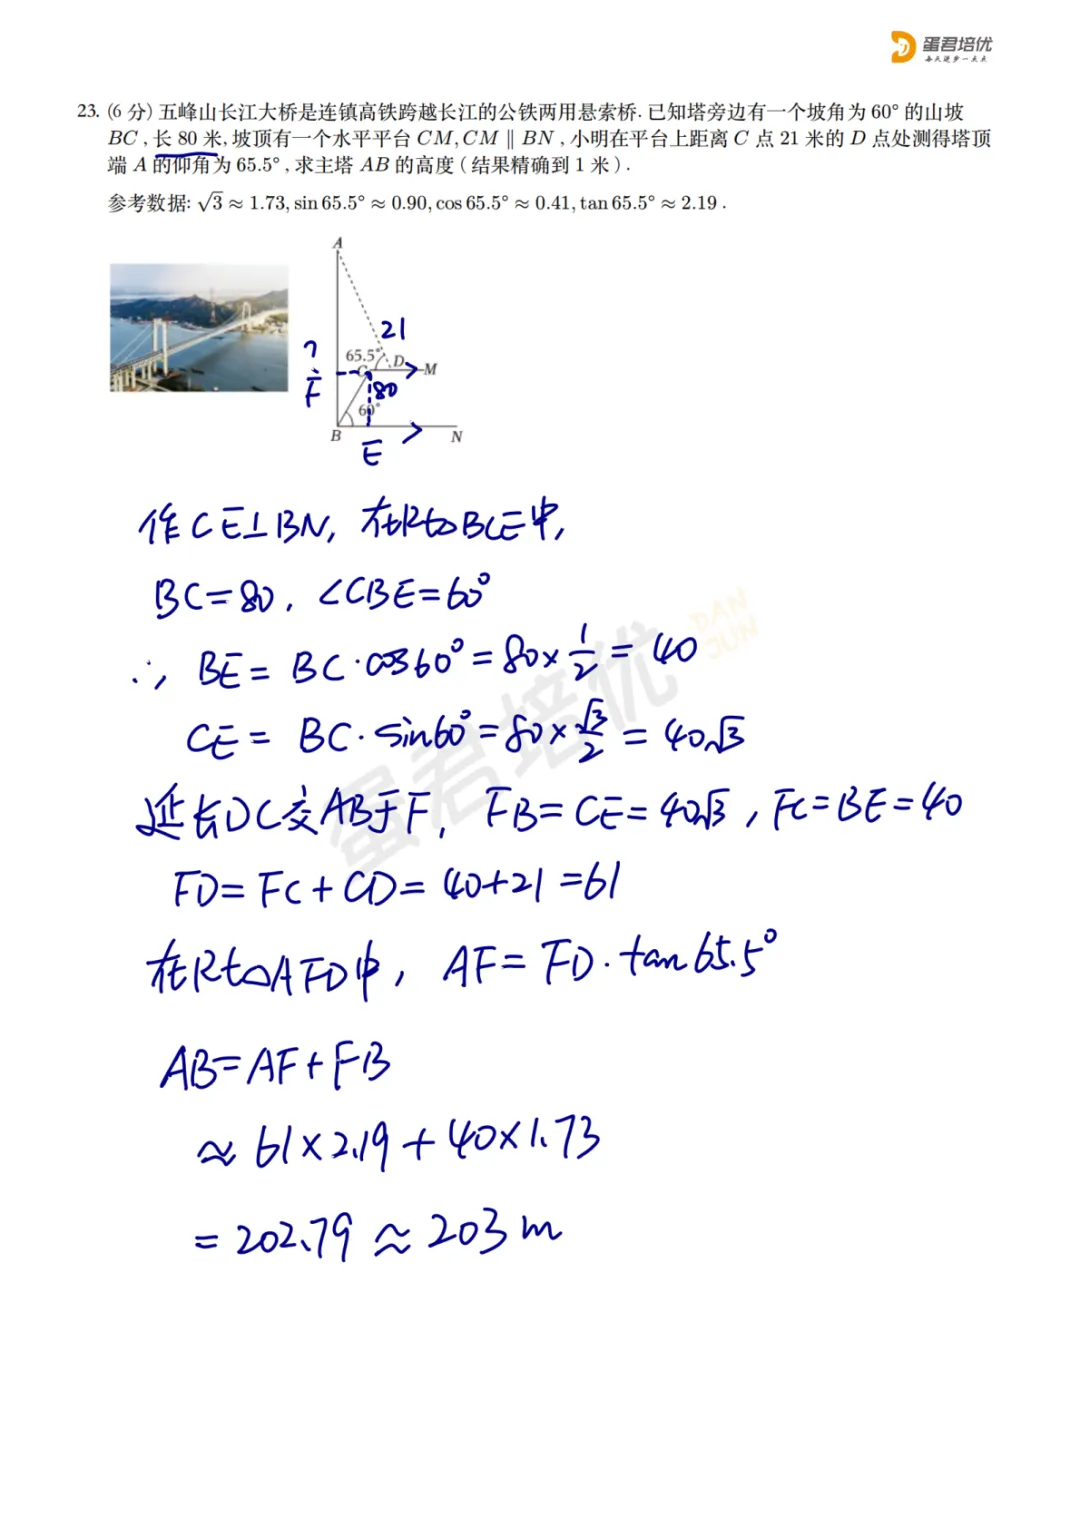 蛋君培优
每天进步一点点
23. (6 分) 五峰山长江大桥是连镇高铁跨越长江的公铁两用悬索桥. 已知塔旁边有一个坡角为 60° 的山坡
BC , 长 80 米, 坡顶有一个水平平台 CM, CM ∥ BN , 小明在平台上距离 C 点 21 米的 D 点处测得塔顶
端 A 的仰角为 65.5° , 求主塔 AB 的高度 ( 结果精确到 1 米 ) .
参考数据: √3 ≈ 1.73, sin 65.5° ≈ 0.90, cos 65.5° ≈ 0.41, tan 65.5° ≈ 2.19 .
A
21
?
65.5°
D
C
M
F
80
60°
B
N
E
作CE⊥BN, 在Rt△BCE中,
BC=80, ∠CBE=60°
∴, BE = BC·cos60° = 80×1/2 = 40
CE = BC·sin60° = 80×√3/2 = 40√3
延长DC交AB于F, FB=CE=40√3, FC=BE=40
FD=FC+CD=40+21=61
在Rt△AFD中, AF=FD·tan65.5°
AB=AF+FB
≈ 61×2.19+40×1.73
=202.79≈203m
蛋君培优
DAN
JUN